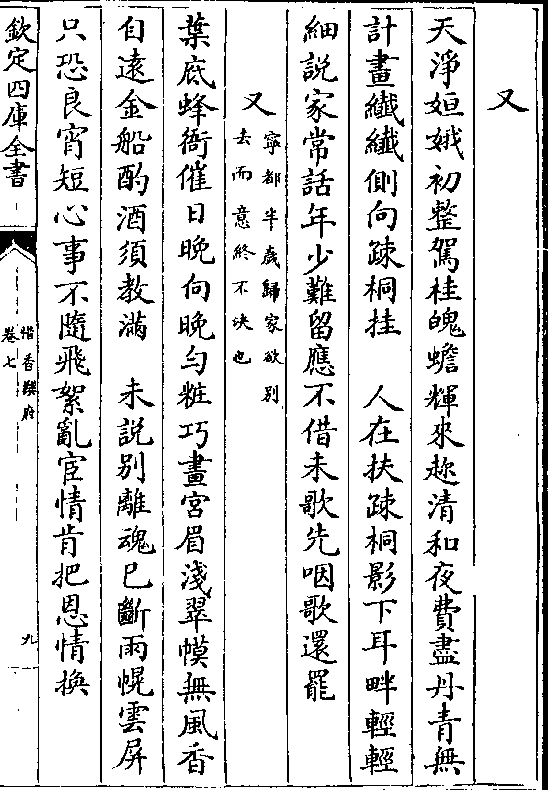 又
天淨姮娥初整駕桂魄蟾輝來趂清和夜費盡丹青無
計畫纎纎側向疎桐挂　人在扶疎桐影下耳畔輕輕
細説家常話年少難留應不借未歌先咽歌還罷
又
寧都半歲歸家欲别
去而意終不決也
葉底蜂衙催日晚向晚勻粧巧畫宫眉淺翠幙無風香
自遠金船酌酒須教滿　未説别離魂已斷雨幌雲屏
只恐良宵短心事不隨飛絮亂宦情肯把恩情换
欽定四庫全書
惜香樂府
卷七
九